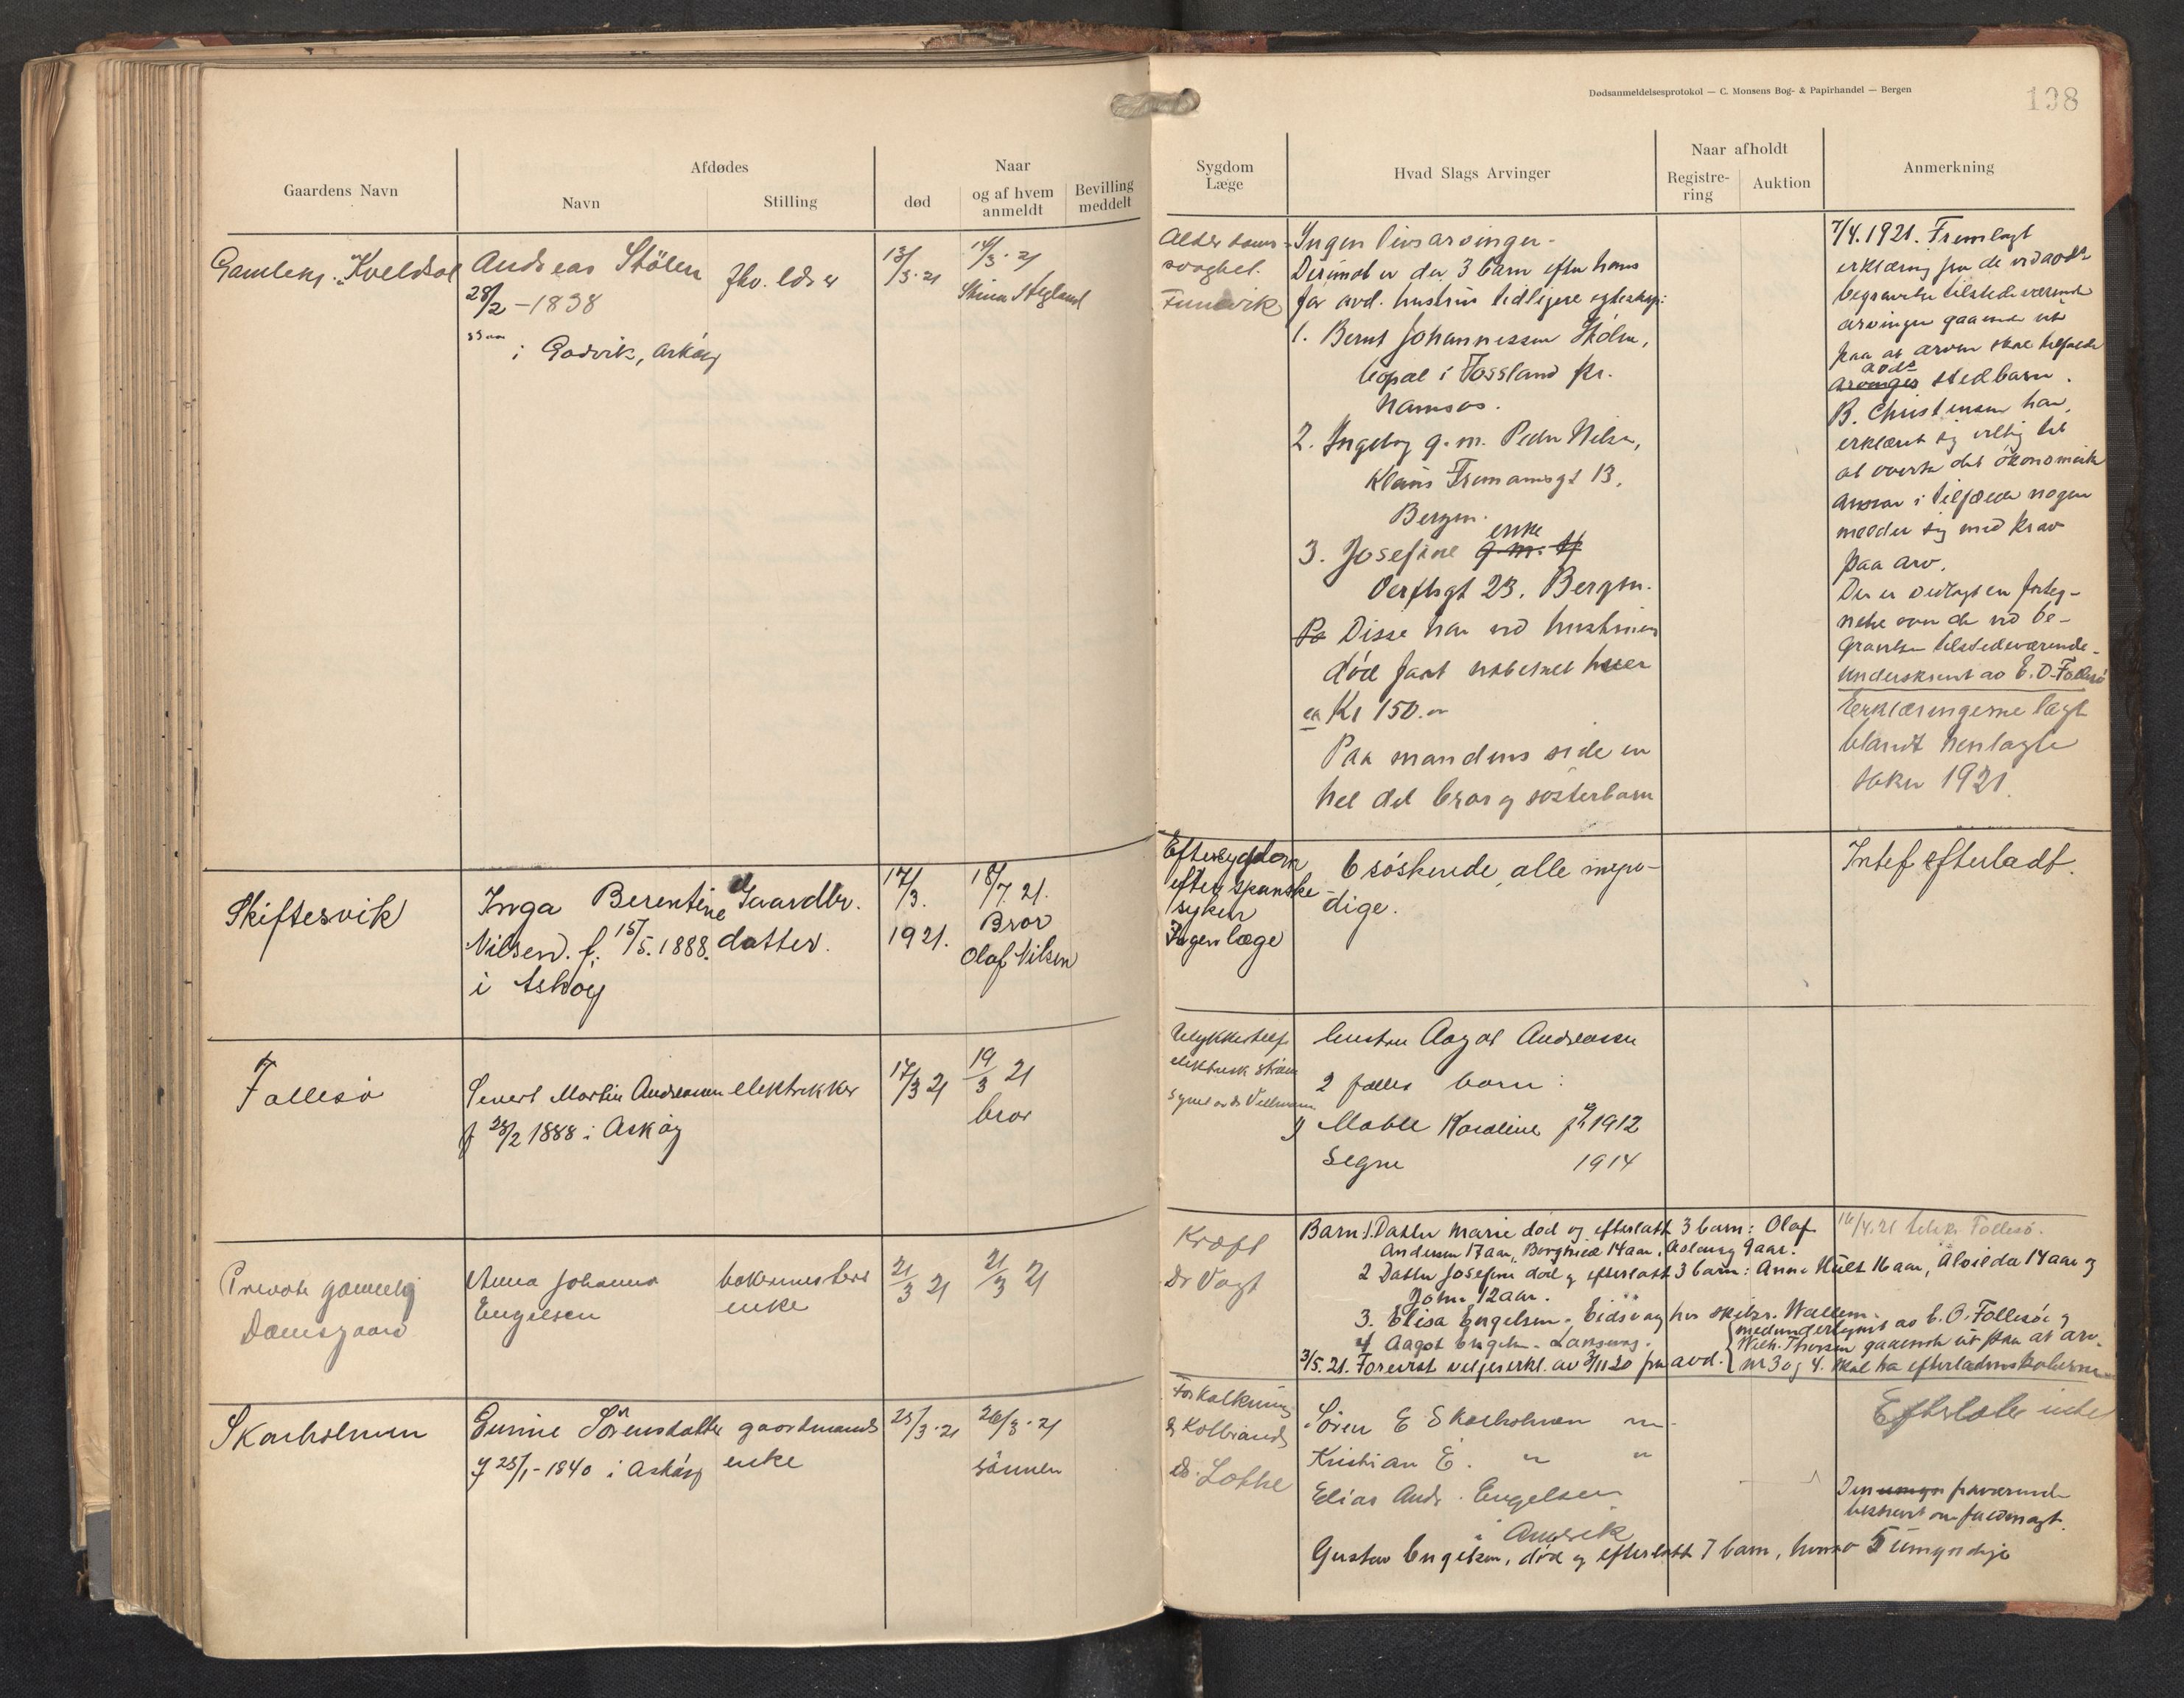 Dødsanmeldelsesprotokol — C. Monsens Bog- & Papirhandel — Bergen
198
Gaardens Navn
Afdødes
Navn
Stilling
Naar
død
og af hvem anmeldt
Bevilling meddelt
Sygdom
Læge
Hvad Slags Arvinger
Naar afholdt
Registrering
Auktion
Anmerkning
Gamlehj. "Kveldsol
Andreas Stölen
28/2 - 1838
i Godvik, Askøy
13/3 · 21
14/3 · 21
Alderdoms-
svaghet.
Ingen livsarvinger -
Derimot er der 3 barn efter hans
før avd. hustrus tidligere egteskap:
1. Bernt Johannessen Stölen,
bopæl i Fossland pr.
Namsos.
2. Ingeborg g.m. Peder Nilsen,
13,
Bergen.
enke
3. Josefine g.m.
23, Bergen.
Disse har ved hustruens
död faat utbetalt hver
ca Kr 150.-
Paa mandens side en
hel del bror og søsterbarn
7/4. 1921. Fremlagt
erklæring fra de ved avdøs
begravelse tilstedeværende
arvinger gaaende ut
paa at arven skal tilfalde
avds
arvinges stedbarn.
B. Christensen har
erklæret sig villig til
at overta det økonomiske
ansvar i tilfælde nogen
melder sig med krav
paa arv.
Der er vedlagt en forteg-
nelse over de ved be-
gravelsen tilstedeværende -
underskrevet av E. O. Follesö
Erklæringerne lagt
blandt henlagte
saker 1921.
Skiftesvik
Inga Berentine
Nilsen. f. 15/5. 1888.
i Askøy
Gaardbr.
datter.
17/3.
1921.
18/7. 21.
Bror
Olaf Nilsen
Eftersygdom
efter spanske
syken
Ingen læge
6 søskende, alle myn-
dige.
Intet efterladt.
Follesö
Severt Martin Andreassen
f 28/2 1888 i Askøy
elektrikker
17/3 21
19/3 21
bror
Ulykkestilf.
elektrisk ström
Hustru Aagot Andreassen
2 fælles barn:
1) Mable Karoline 1912
Segne 1914
Private gamlehj
Damsgaard
Anna Johanna
Engelsen
bakermesters
enke
21/3 21
21/3 21
Kræft
Dr Vogt
Barn 1. Datter Marie död og efterlatt 3 barn: Olaf
Andersen 17 aar, Borghild 14 aar, Aslaug 9 aar.
2 Datter Josefine död og efterlatt 3 barn: Anna 16 aar, Alvilda 14 aar og
John 12 aar.
3. Elisa Engelsen - Eidsvaag hos Wallem.
4 Aagot Engelsen - Laksevaag.
3/5. 21. Forevist av 3/11 20 fra avd.
medundertegnet av E. O. Follesö og
Wilh. Thorsen gaaende ut paa at arv.
nr 3 og 4. skal ha
16/4. 21 Follesö.
Skarholmen
Gurine Sörensdatter
f 25/1 - 1840 i Askøy
gaardmands
enke
25/3 · 21
26/3 · 21
sönnen
Forkalkning
& Kolbrand
Dr. Lothe
Sören E Skarholmen
Kristian E. " "
Elias Andr. Engelsen
i Amerik
Gustav Engelsen, död og efterlatt 7 barn, hvorav 5 umyndige
Efterlot intet
Den umyn fraværende